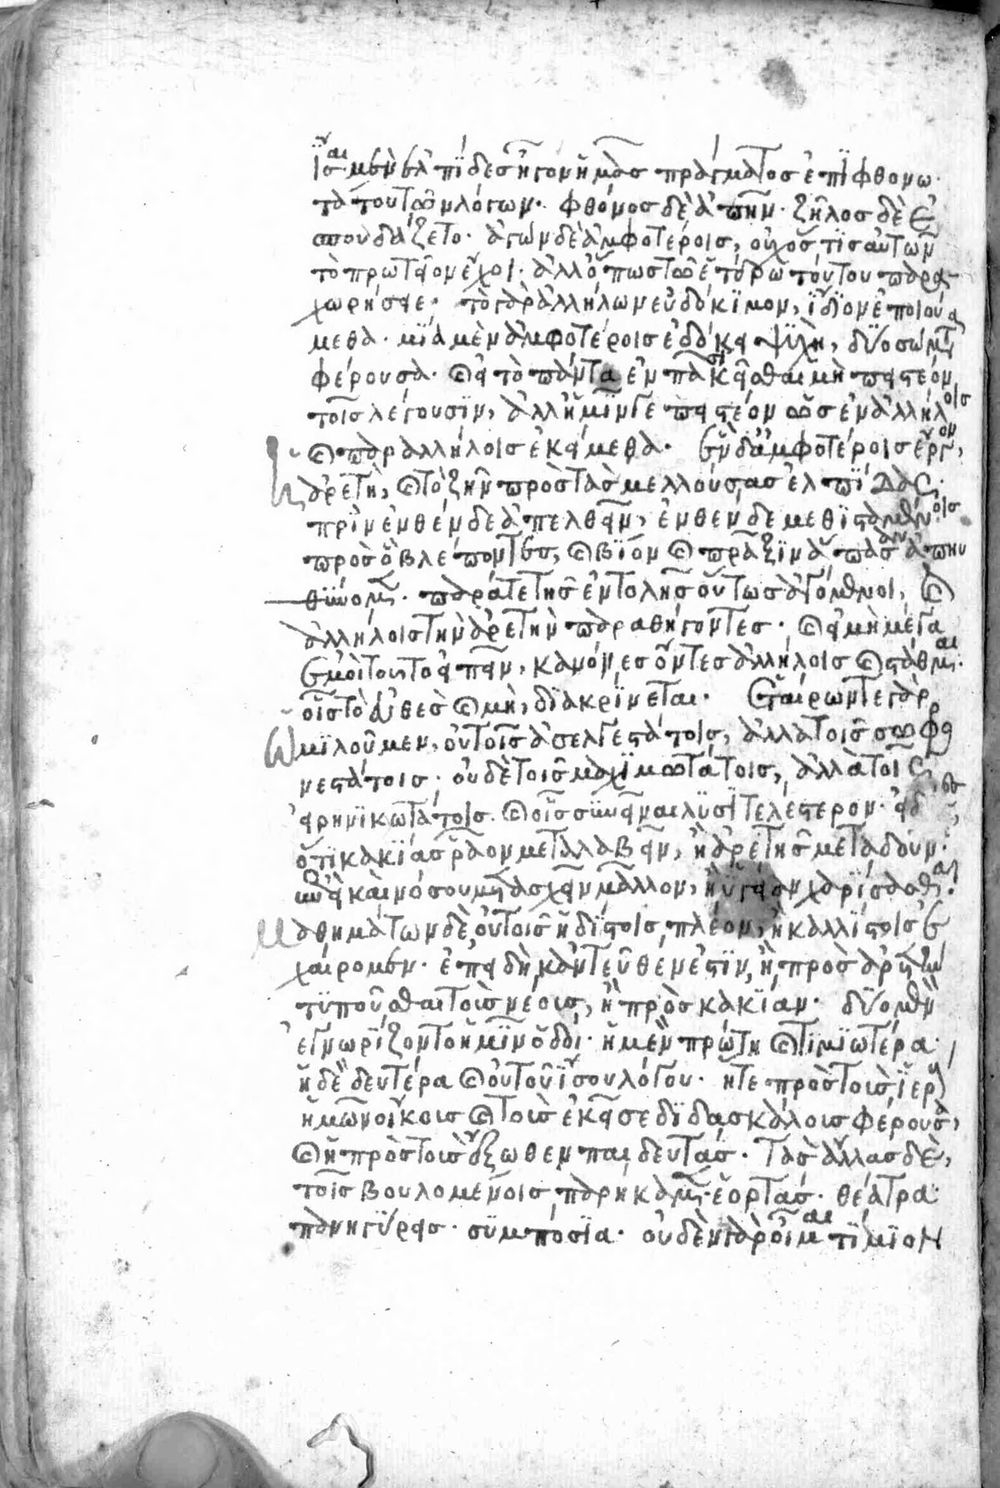 Ἴσαι μὲν ἐλπίδες ἦγον ἡμᾶς πράγματος ἐπιφθονω
τάτου τῶν λόγων· φθόνος δὲ ἀπῆν· ζῆλος δὲ ἐ
σπουδάζετο· ἀγὼν δὲ ἀμφοτέροις, οὐχ ὅστις αὐτῶν
τὸ πρωτεῖον ἔχοι· ἀλλ' ὅπως τῷ ἑτέρῳ τούτου παρα
χωρήσειε· τὸ γὰρ ἀλλήλων εὐδόκιμον, ἴδιον ἐποιού
μεθα· μία μὲν ἀμφοτέροις ἐδόκει ψυχὴ, δύο σώματα
φέρουσα· καὶ τὸ πάντα ἐν πᾶσι κεῖσθαι μὴ πειστέον
τοῖς λέγουσιν, ἀλλ' ἡμῖν γε πειστέον ὡς ἐν ἀλλήλοις
καὶ παρ' ἀλλήλοις ἐκείμεθα· ἓν δ' ἀμφοτέροις ἔργον,
ἡ ἀρετὴ, καὶ τὸ ζῆν πρὸς τὰς μελλούσας ἐλπίδας·
πρὶν ἐνθένδε ἀπελθεῖν, ἐνθένδε μεθισταμένοις
πρὸς ὃ βλέποντες, καὶ βίον καὶ πρᾶξιν ἅπασαν ἀπηυ
θύνομεν· παρά τε τῆς ἐντολῆς οὕτως ἀγόμενοι, καὶ
ἀλλήλοις τὴν ἀρετὴν παραθήγοντες· καὶ εἰ μὴ μέγα
ἐμοὶ τοῦτο εἰπεῖν, κανόνες ὄντες ἀλλήλοις καὶ στάθμαι·
οἷς τὸ εὐθὲς καὶ μὴ, διακρίνεται· ἑταίρων τε γὰρ
ὡμιλοῦμεν, οὐ τοῖς ἀσελγεστάτοις, ἀλλὰ τοῖς σωφρο
νεστάτοις· οὐδὲ τοῖς μαχιμωτάτοις, ἀλλὰ τοῖς
εἰρηνικωτάτοις· καὶ οἷς συνεῖναι λυσιτελέστερον· εἰδότες
ὅτι κακίας ῥᾷον μεταλαβεῖν, ἢ ἀρετῆς μεταδοῦναι·
ἐπεὶ καὶ νόσου μετασχεῖν μᾶλλον, ἢ ὑγίειαν χαρίσασθαι·
μαθημάτων δὲ, οὐ τοῖς ἡδίστοις πλέον, ἢ καλλίστοις ἐ
χαίρομεν· ἐπειδὴ κἀντεῦθεν ἐστὶν, ἢ πρὸς ἀρετὴν
τυποῦσθαι τοὺς νέους, ἢ πρὸς κακίαν· δύο μὲν
ἐγνωρίζοντο ἡμῖν ὁδοί· ἡ μὲν πρώτη καὶ τιμιωτέρα·
ἡ δὲ δευτέρα καὶ οὐ τοῦ ἴσου λόγου· ἥ τε πρὸς τοὺς ἱεροὺς
ἡμῶν οἴκους καὶ τοὺς ἐκεῖσε διδασκάλους φέρουσα,
καὶ ἡ πρὸς τοὺς ἔξωθεν παιδευτάς· τὰς ἄλλας δὲ,
τοῖς βουλομένοις παρήκαμεν· ἑορτάς· θέατρα·
πανηγύρεις· συμπόσια· οὐδὲν γὰρ οἶμαι τίμιον